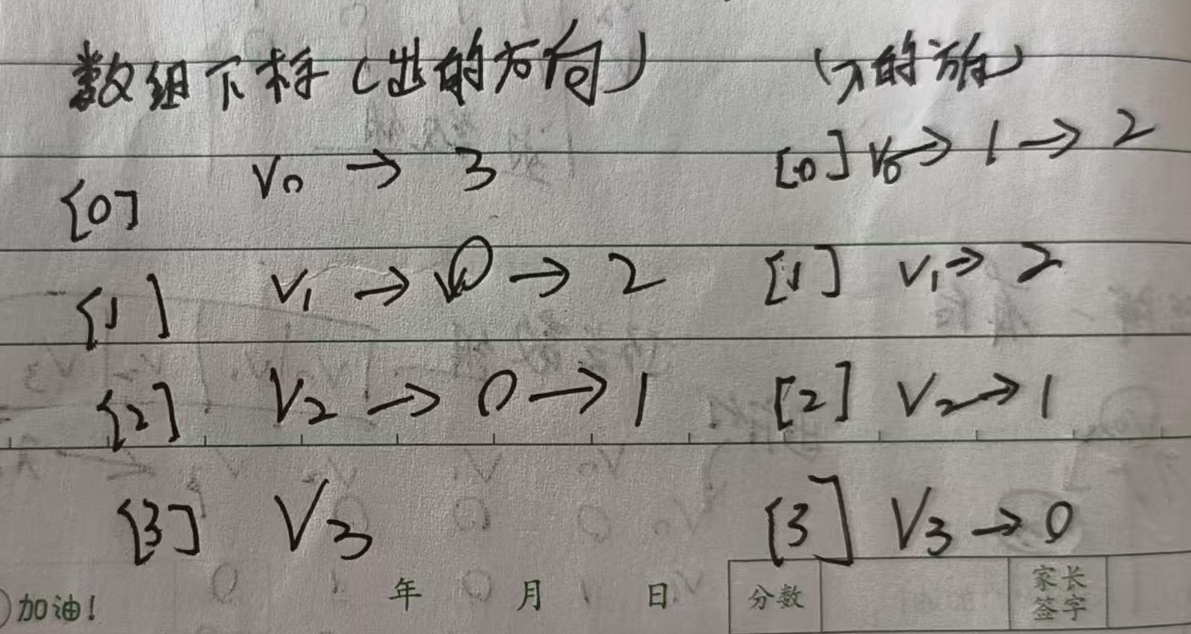 数组下标(出的方向) (入的方向)
[0] V0 → 3 [0] V0 → 1 → 2
[1] V1 → 0 → 2 [1] V1 → 2
[2] V2 → 0 → 1 [2] V2 → 1
[3] V3 [3] V3 → 0
加油! 年 月 日 分数 家长签字